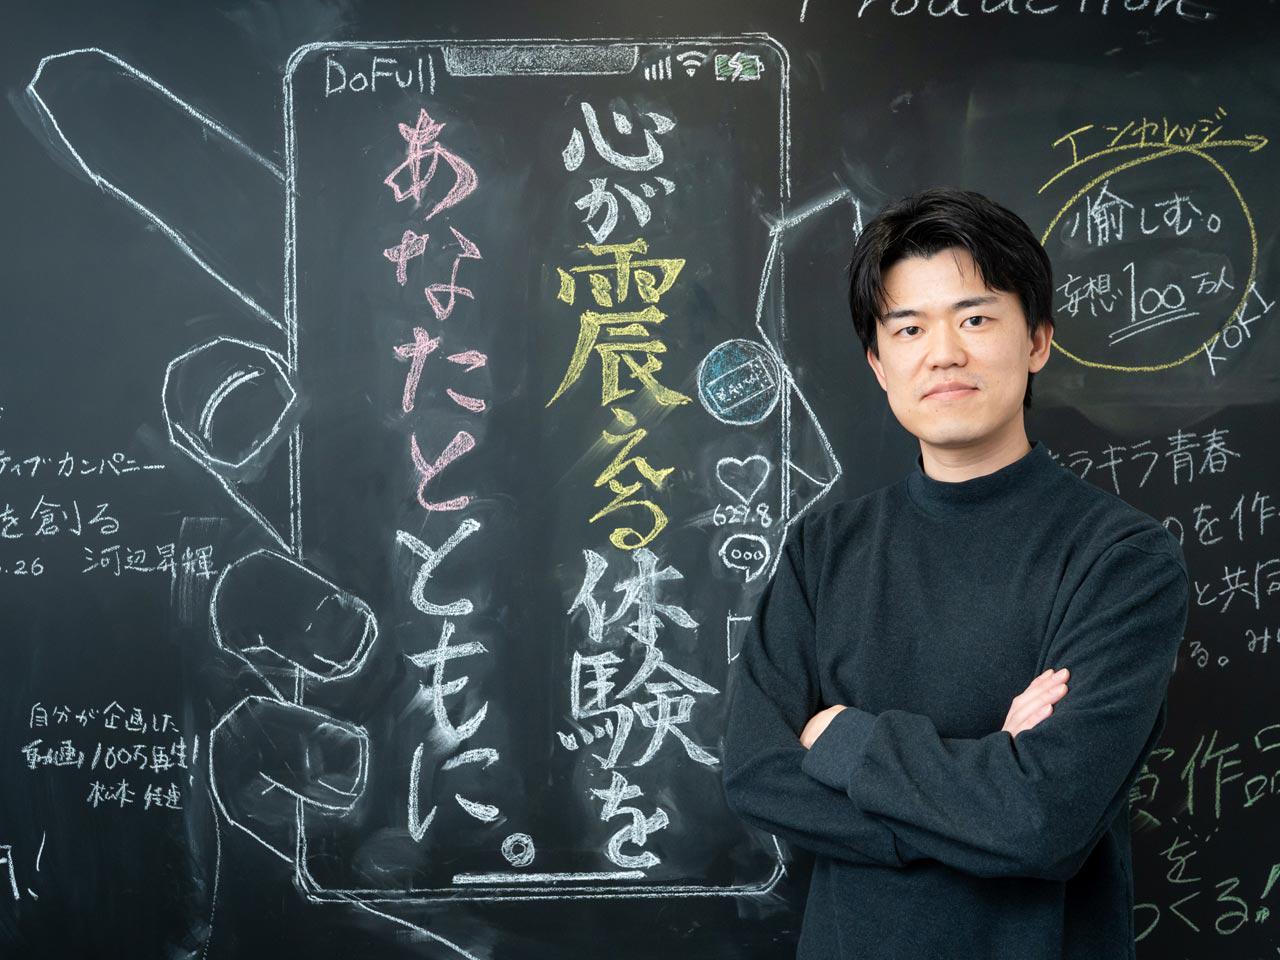 Production.
DoFull
心が震える体験を
あなたとともに。
インセレッジ
愉しむ。
妄想100万人
KOKI
629.8
ティブカンパニー
を創る
.26 河辺昇輝
自分が企画した
動画100万再生!
ラギラ青春
のを作
と共同
る。み
賞作品
を
つくる!